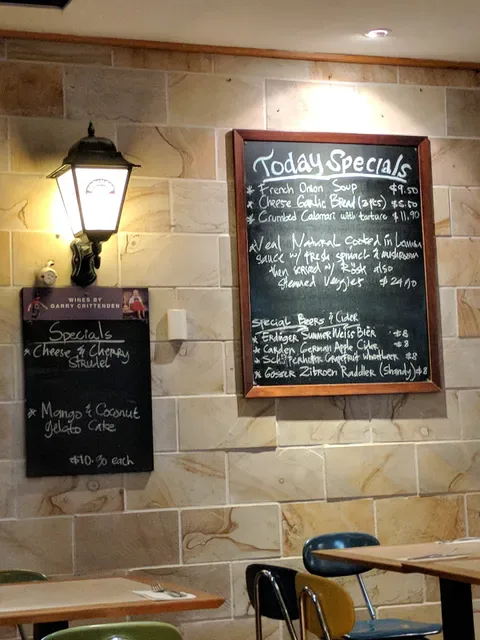 Today Specials
* French Onion Soup $9.50
* Cheese Garlic Bread (2pcs) $5.50
* Crumbed Calamari with tartare $11.90
Veal Natural Cooted in Lemon
sauce w/ fresh spinach & mushroom
then served w/ Rosti also
Steamed Veggies $24.90
Special Beers & Cider
* Erdinger Summer Weiss Bier $8
* Carden German Apple Cider $8
* Schöfferhofer Grapefruit Wheatbeer $8
* Gosser Zitroen Raddler (Shandy) $8
WINES BY
GARRY CRITTENDEN
Specials
* Cheese & Cherry
Strudel
* Mango & Coconut
gelato Cake
$10.30 each